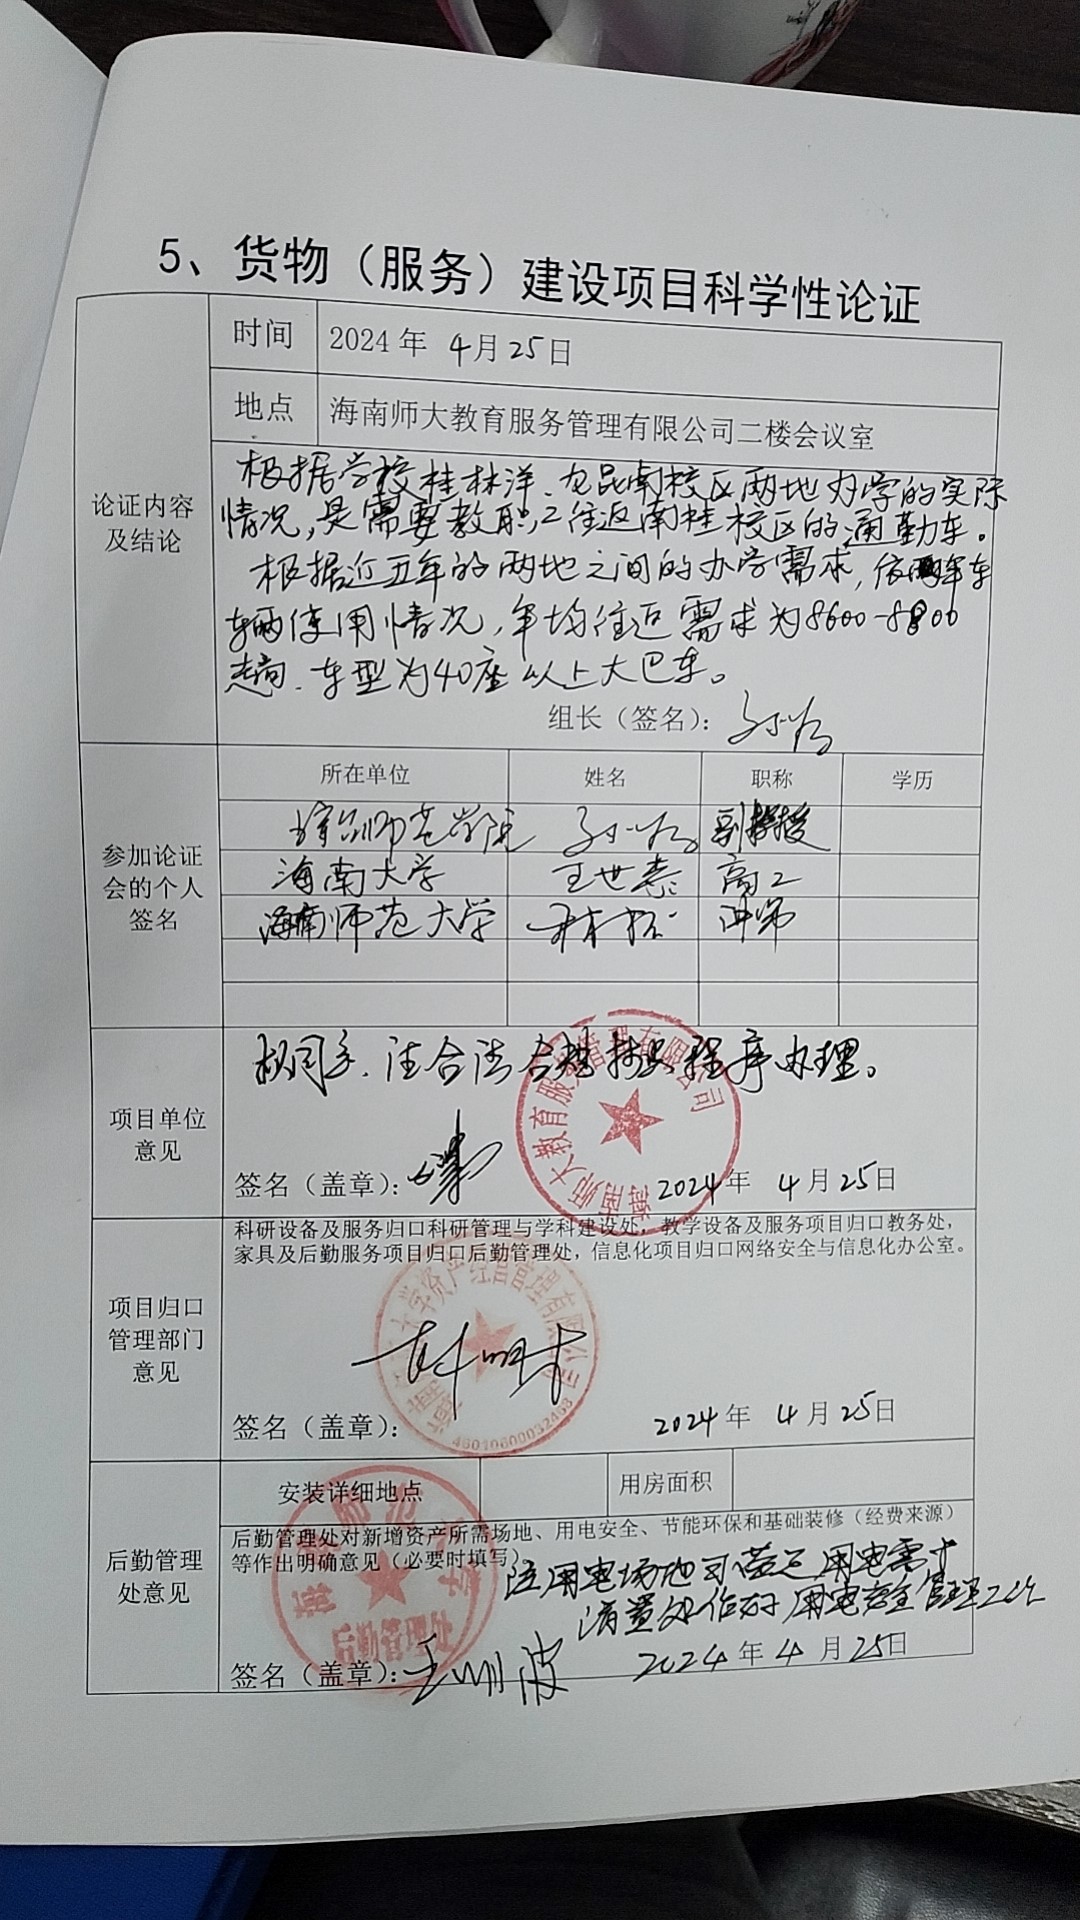 5、货物（服务）建设项目科学性论证
时间 2024年 4月25日
地点 海南师大教育服务管理有限公司二楼会议室
论证内容及结论
根据学校桂林洋、龙昆南校区两地办学的实际
情况，是需要教职工往返南桂校区的通勤车。
根据近五年的两地之间的办学需求，依
车辆使用情况，年均往返需求为8600-8800
趟、车型为40座以上大巴车。
组长（签名）：
参加论证会的个人签名
所在单位 姓名 职称 学历
琼台师范学院 副教授
海南大学 王世 高工
海南师范大学 讲师
项目单位意见
拟同意、请合法合规 程序办理。
海南师大教育服务管理有限公司
签名（盖章）： 2024年 4月25日
项目归口管理部门意见
科研设备及服务归口科研管理与学科建设处，教学设备及服务项目归口教务处，
家具及后勤服务项目归口后勤管理处，信息化项目归口网络安全与信息化办公室。
大学资产经营管理有限公司
签名（盖章）： 2024年 4月25日
后勤管理处意见
安装详细地点 用房面积
后勤管理处对新增资产所需场地、用电安全、节能环保和基础装修（经费来源）
等作出明确意见（必要时填写）
用电场地可满足用电需
用电安全管理工作
后勤管理处
签名（盖章）： 2024年 4月25日